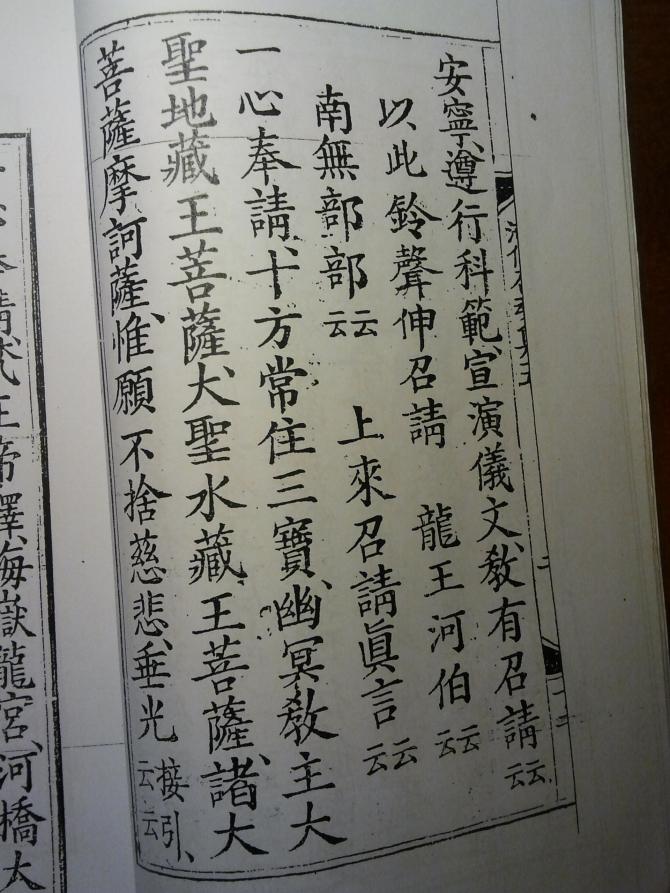 安寧、遵行科範、宣演儀文、教有召請云云
以此鈴聲伸召請　龍王河伯云云
南無部部云云　上來召請眞言云云
一心奉請、十方常住三寶、幽冥教主大
聖地藏王菩薩、大聖水藏王菩薩、諸大
菩薩摩訶薩、惟願不捨慈悲、垂光接引、云云
請、梵王帝釋、海嶽龍宮、河橋大